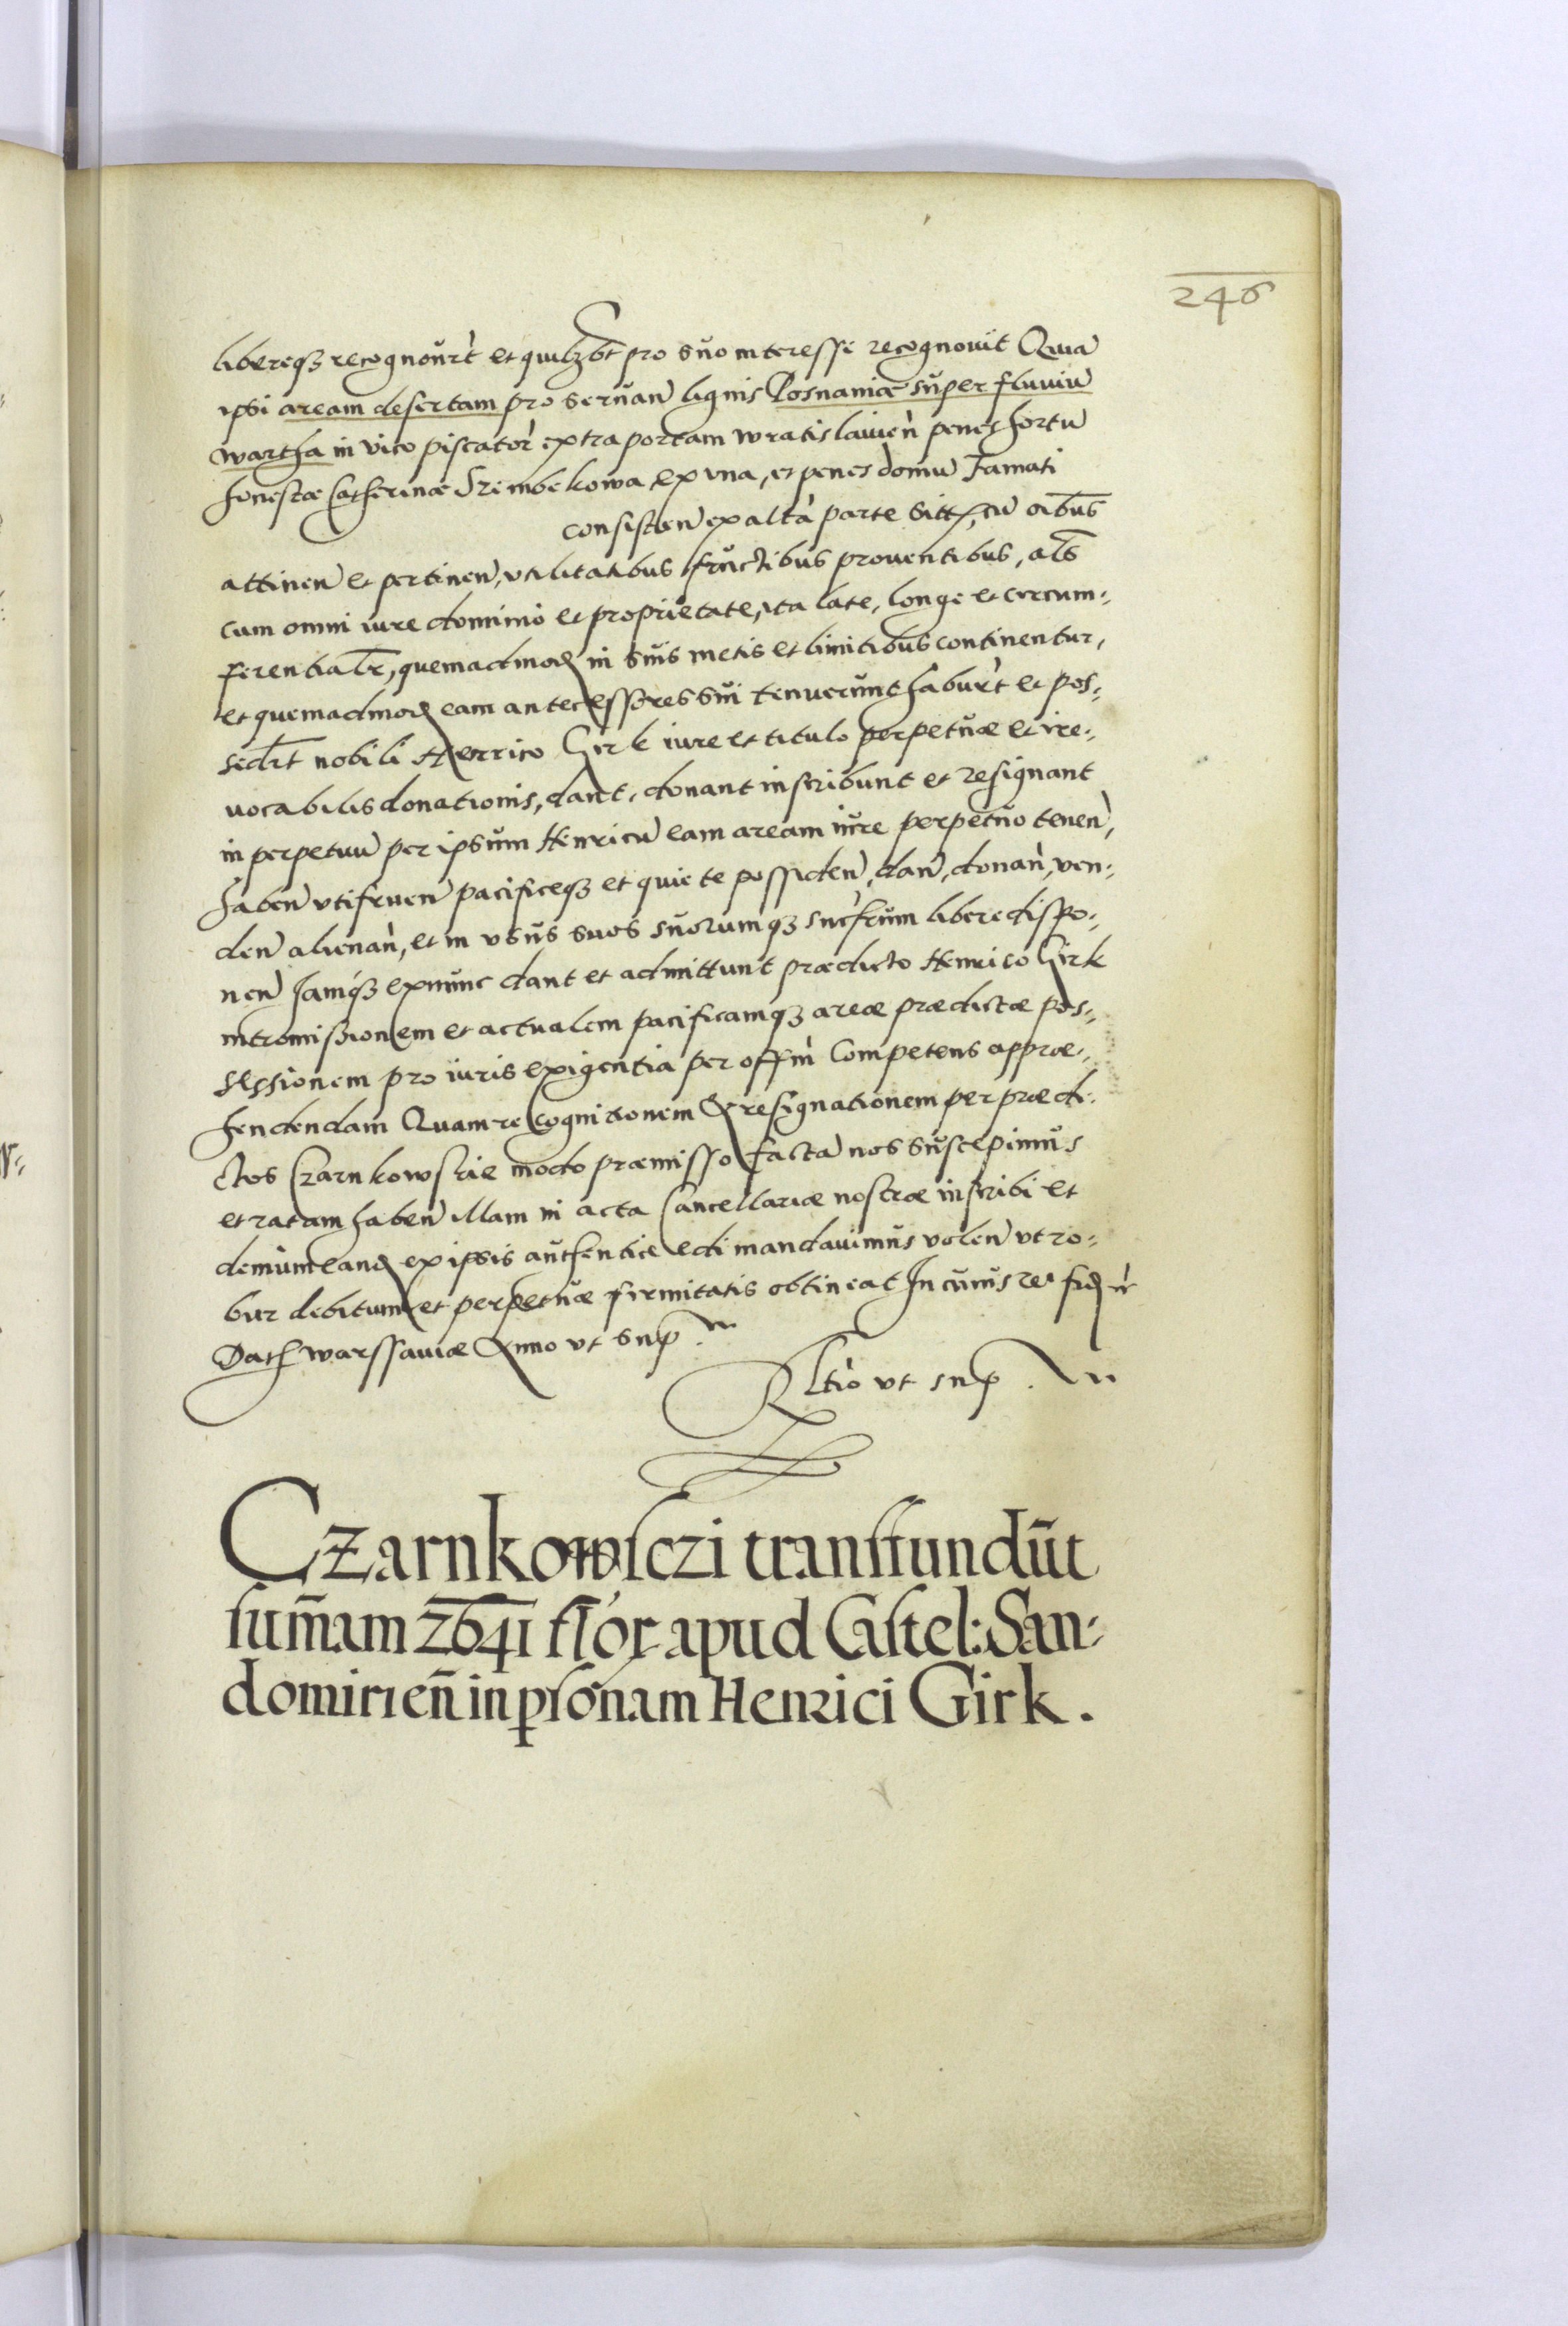 246
libereqꝫ recognoũrt et quilꝫbt pro suo interesse recognovit Quia
ipsi aream desertam pro servan̄ lignis Posnaniæ super fluviũ
wartha in vico piscator̀ extra portam wratislavien̄ penes hortũ
honestæ Catherinæ Szembekowa ex vna, et penes domũ Famati
consisten̄ ex altà parte sitt, cũ oĩbus
attinen̄ et pertinen̄, vtilitatibus fructibus proventibus, als
cum omni iure dominio et proprietate, ita late, longe et circum-
ferentialr, quemadmod in suis metis et limitibus continentur,
et quemadmod eam antecessores sui tenuerunt habuer̀t et pos-
sedr̃t nobili Henrico Girk iure et titulo perpetuæ et irre-
vocabilis donationis, dant, donant inscribunt et resignant
in perpetuũ per ipsum Henricũ eam aream iure perpetuo tenen̄,
haben̄ vtifruen̄ pacificeqꝫ et quiete possiden̄, dan̄, donan̄, ven-
den̄ alienan̄, et in vsus suos suorumqꝫ suc̀srum libere dispo-
nen̄ Jamqꝫ exnunc dant et admittunt prædicto Henrico Girk
intromissionem et actualem pacificamqꝫ areæ prædictæ pos-
sessionem pro iuris exigentia per offin̄ competens appræ-
hendendam Quam recognitionem & resignationem per prædi-
ctos Czarnkowskie modo præmisso factã nos suscepimus
et ratam haben̄ illam in acta Cancellariæ nostræ inscribi et
demum eand ex ipsis authentice edi mandavimus volen̄ vt ro-
bur debitum et perpetuæ firmitatis obtineat In cuius rei fid r̀
Dat warssaviæ Anno vt sup
Rltio vt sup.
Czarnkowsczi transfundũt
sum̃am 2641 flor apud Castel: San-
domirien̄ in psonam Henrici Girk.